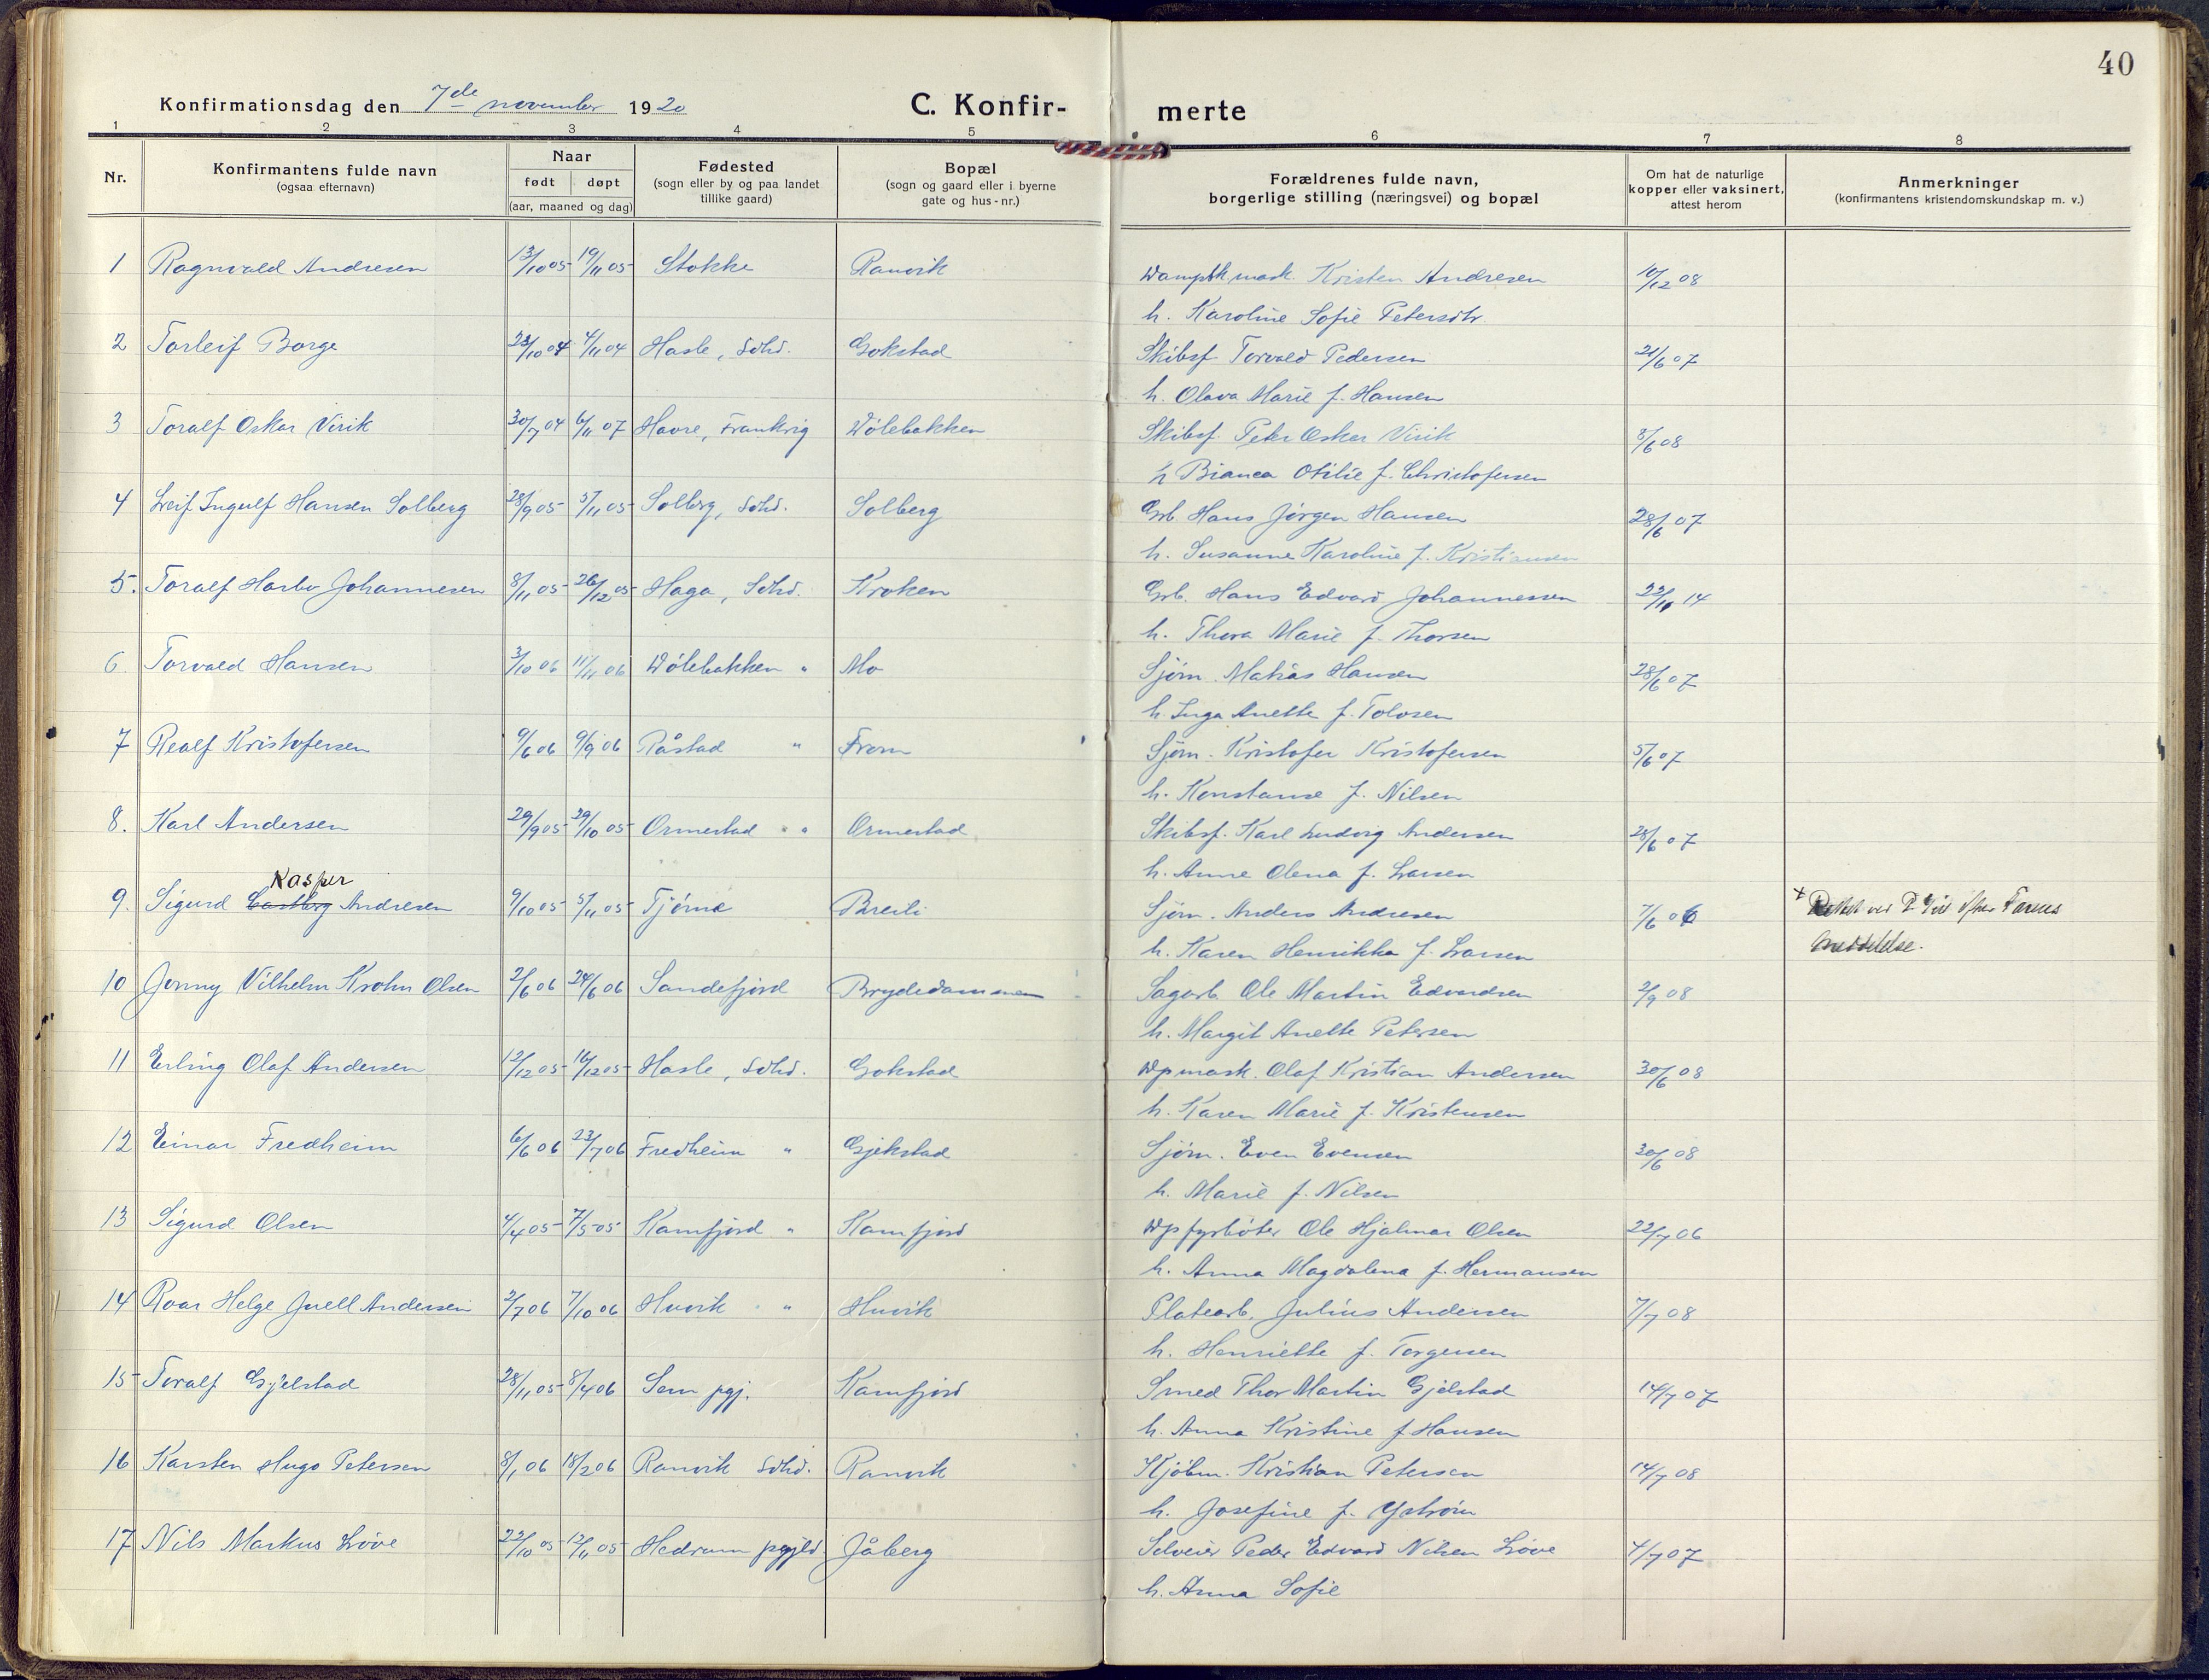 40
Konfirmationsdag den 7de november 1920
C. Konfir-
merte
1 2 3 4 5 6 7 8
Nr.
Konfirmantens fulde navn
(ogsaa efternavn)
Naar
født døpt
(aar, maaned og dag)
Fødested
(sogn eller by og paa landet
tillike gaard)
Bopæl
(sogn og gaard eller i byerne
gate og hus-nr.)
Forældrenes fulde navn,
borgerlige stilling (næringsvei) og bopæl
Om hat de naturlige
kopper eller vaksinert,
attest herom
Anmerkninger
(konfirmantens kristendomskundskap m. v.)
1 Ragnvald Andresen 13/10 05 19/11 05 Stokke Ranvik Dampsk.mask. Kristen Andresen 10/12 08
h. Karoline Sofie Petersdtr.
2 Torleif Borge 23/10 04 4/11 04 Hasle, Sdhd. Gokstad Skibsf. Torvald Pedersen 21/6 07
h. Olava Marie f. Hansen
3 Toralf Oskar Virik 30/7 04 6/11 07 Havre, Frankrig Dølebakken Skibsf. Peter Oskar Virik 8/6 08
h Bianca Otilie f. Christofersen
4 Leif Ingulf Hansen Solberg 28/9 05 5/11 05 Solberg, Sdhd. Solberg Grb. Hans Jørgen Hansen 28/6 07
h. Susanne Karoline f. Kristiansen
5. Toralf Harbo Johannesen 8/11 05 26/12 05 Haga, Sdhd. Kroken Grb. Hans Edvard Johannessen 22/11 14
h. Thora Marie f. Thorsen
6. Torvald Hansen 3/10 06 11/11 06 Dølebakken " Mo Sjøm. Matias Hansen 28/6 07
h. Inga Anette f. Tolvsen
7 Realf Kristofersen 9/6 06 9/9 06 Råstad " Frem Sjøm. Kristofer Kristofersen 5/6 07
h. Konstanse f. Nilsen
8. Karl Andersen 29/9 05 29/10 05 Ormestad " " Ormestad Skibsf. Karl Ludvig Andersen 28/6 07
h. Anne Olena f. Larsen
Kasper
9. Sigurd Castberg Andresen 9/10 05 5/11 05 Tjøme Breili Sjøm. Anders Andresen 7/6 06 + Rettet ved efter Farens
h. Karen Henrikka f. Larsen meddelelse.
10 Jonny Vilhelm Krohn Olsen 2/6 06 24/6 06 Sandefjord Brydedammen Sagarb. Ole Martin Edvardsen 2/9 08
h. Margit Anette Petersen
11 Erling Olaf Andersen 12/12 05 16/12 05 Hasle, Sdhd. Gokstad Dpmask. Olaf Kristian Andersen 30/6 08
h. Karen Marie f. Kristensen
12 Einar Fredheim 6/6 06 23/7 06 Fredheim " Gjekstad Sjøm. Even Evensen 30/6 08
h. Marie f. Nilsen
13 Sigurd Olsen 4/4 05 7/5 05 Kamfjord " Kamfjord Dpfyrbøter Ole Hjalmar Olsen 22/7 06
h. Anna Magdalena f. Hermansen
14 Roar Helge Juell Andersen 2/7 06 7/10 06 Huvik " Huvik Platearb. Julius Andersen 7/7 08
h. Henriette f. Torgersen
15 Toralf Gjelstad 28/11 05 8/4 06 Sem pgj. Kamfjord Smed Thor Martin Gjelstad 14/7 07
h. Anna Kristine f Hansen
16 Karsten Hugo Petersen 8/1 06 18/2 06 Ranvik Sdhd. Ranvik Kjøbm. Kristian Petersen 14/7 08
h. Josefine f. Ystrøm
17 Nils Markus Løve 22/10 05 12/11 05 Hedrum pgjld Jåberg Selveier Peder Edvard Nilsen Løve 4/7 07
h. Anna Sofie